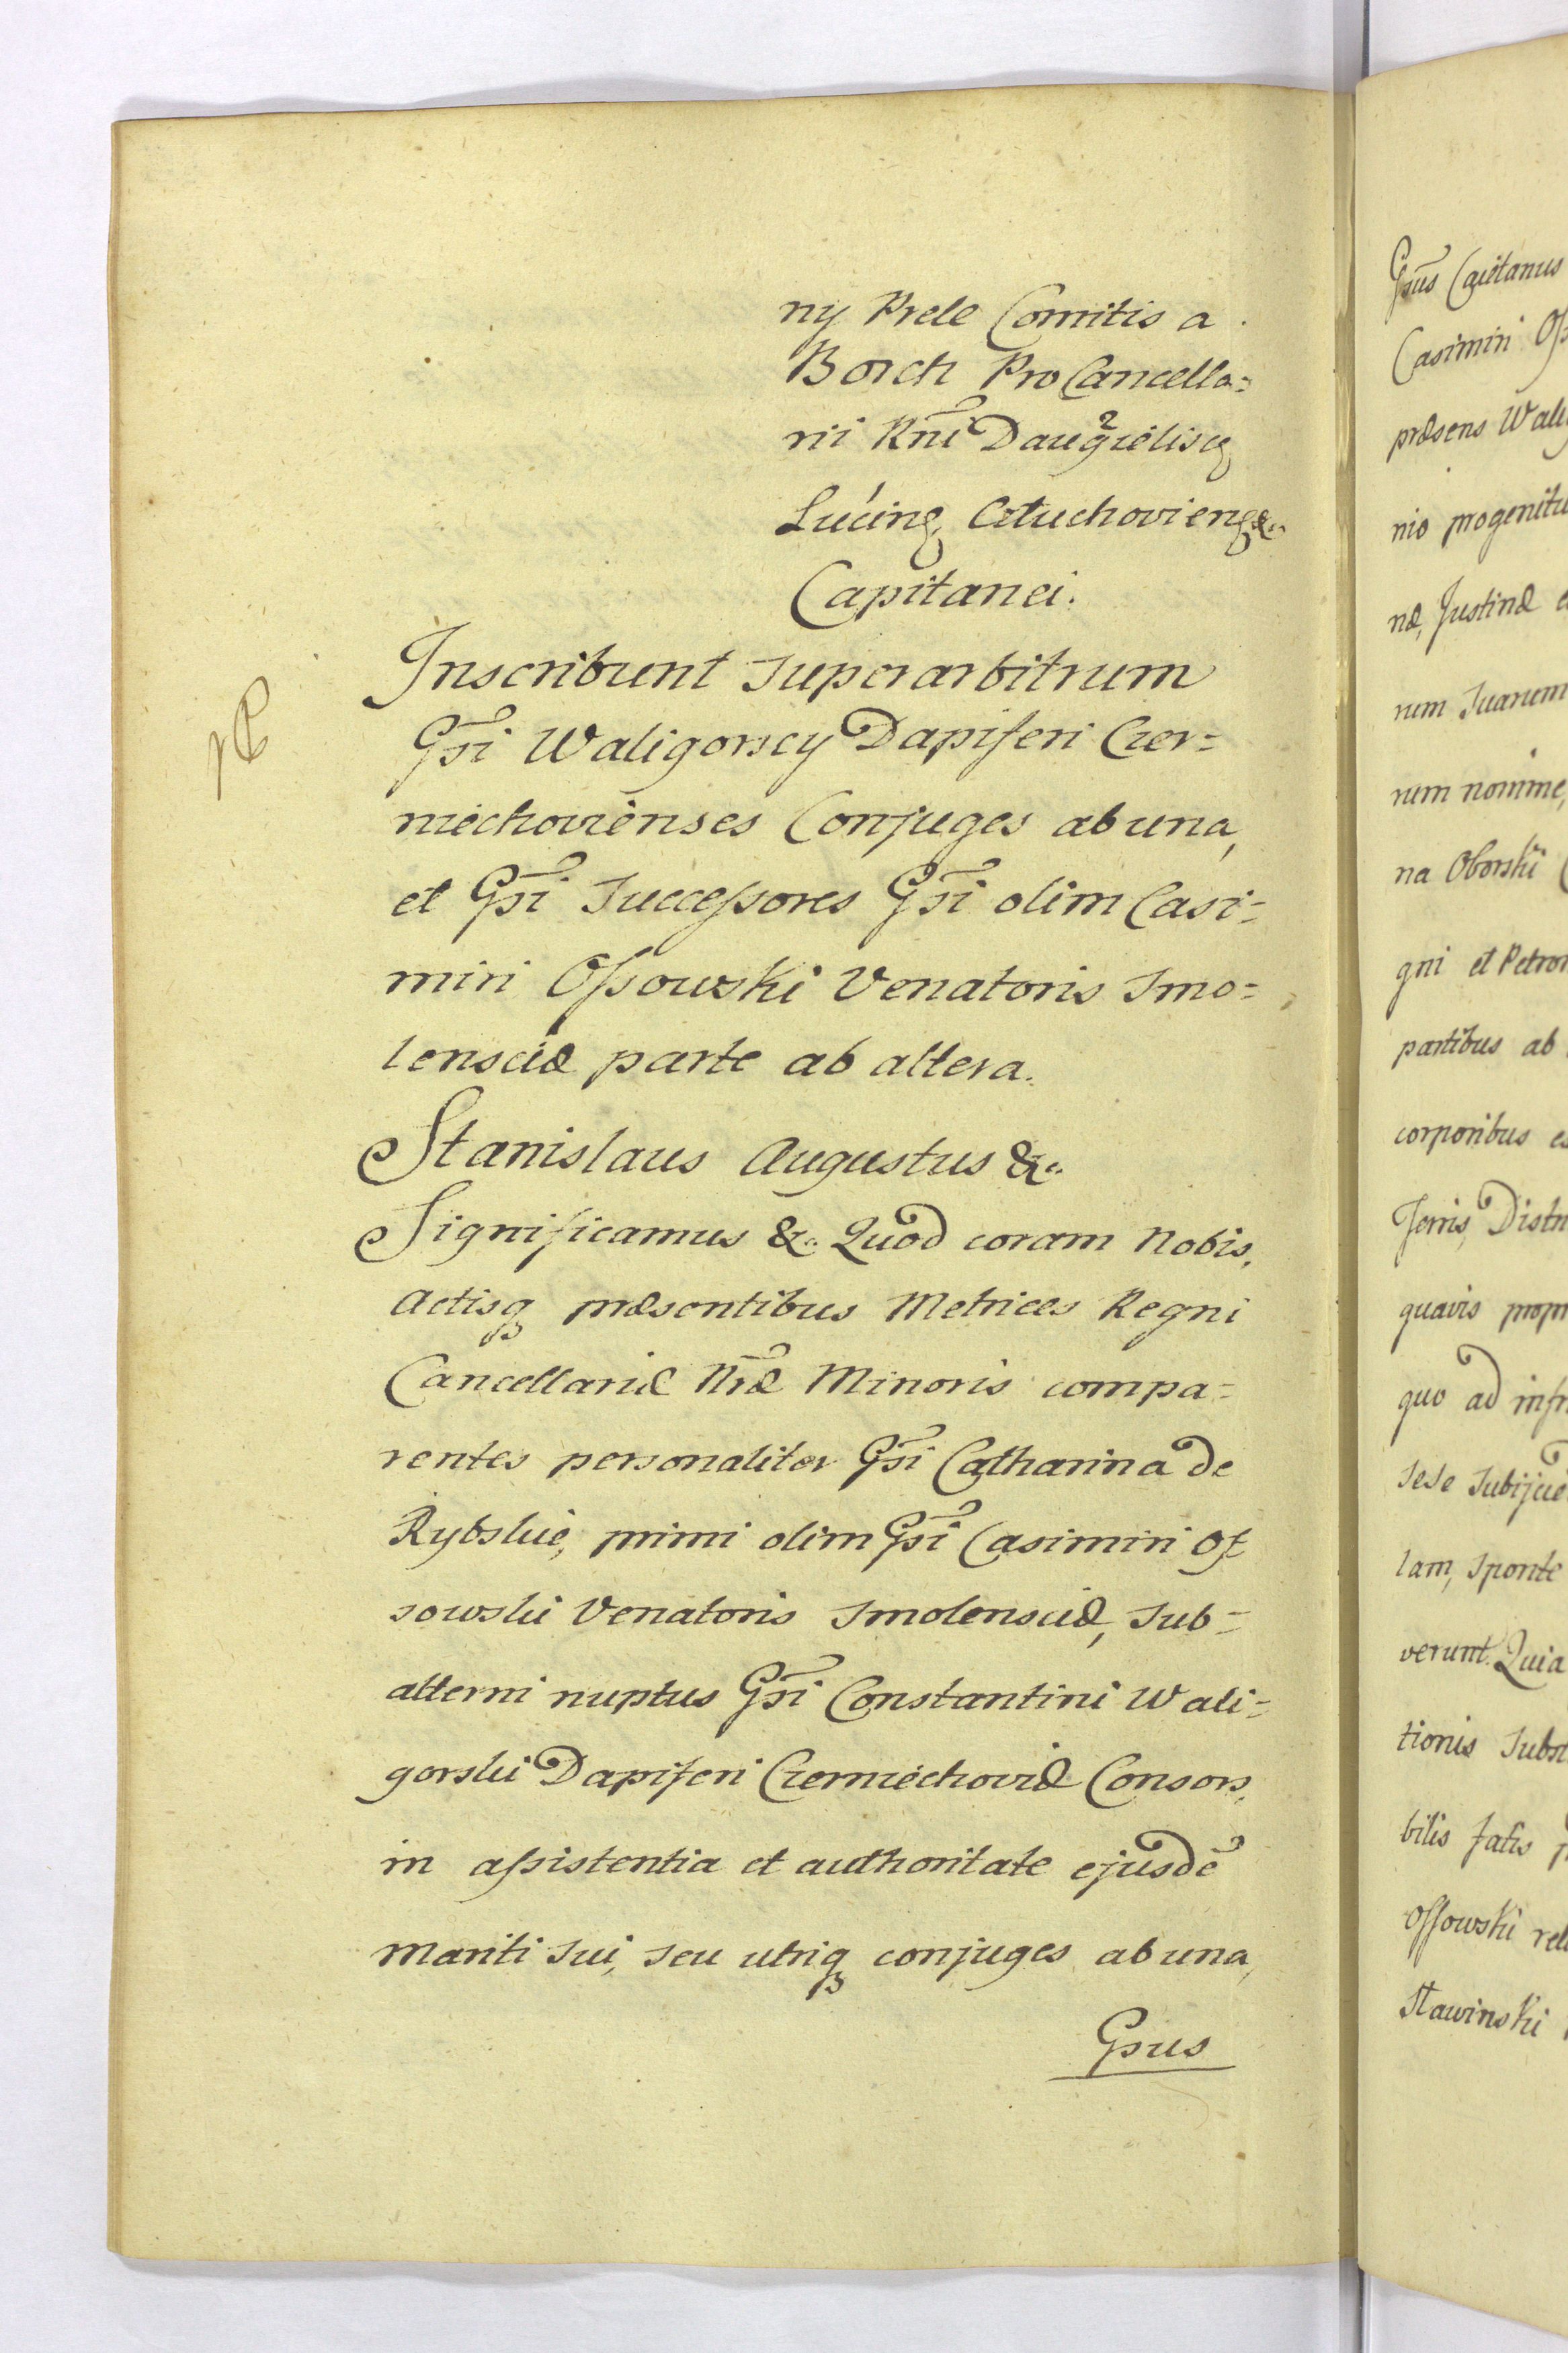 ny Prele Comitis a
Borch Pro Cancella=
rii Rni
Capitanei.
Inscribunt Superarbitrum
Gsi Waligorscy Dapiferi Czer=
niechovienses Conjuges ab una,
et Gsi Successores Gsi olim Casi=
miri Ossowski Venatoris Smo=
lensciæ parte ab altera.
Stanislaus Augustus &c.
Significamus &c. Quod coram Nobis,
Actisq præsentibus Metrices Regni
Cancellariæ Nræ Minoris compa=
rentes personaliter Gsi Catharina de
Rybskie, primi olim Gsi Casimiri Os=
sowski Venatoris Smolensciæ, Sub=
alterni nuptus Gsi Constantini Wali=
gorski Dapiferi Czerniechoviæ Consors,
in assistentia et authoritate ejusdē
Mariti Sui, Seu utriq conjuges ab una,
Gsus
Gsus Caietanus
Casimiri
præsens
nio
næ, Justinæ
rum Suarum
rum nomine,
na Oborski
gni et
partibus ab
corporibus
Terris,
quavis
quo ad
sese
lam, Sponte
verunt. Quia
tionis
bilis fatis
Ossowski
Stawinski